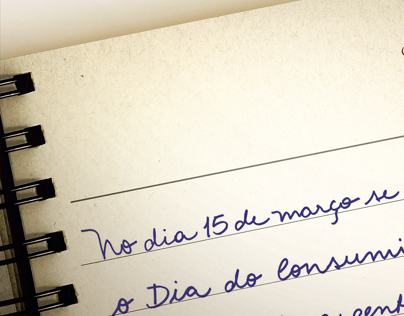 No dia 15 de março se
o Dia do Consumi